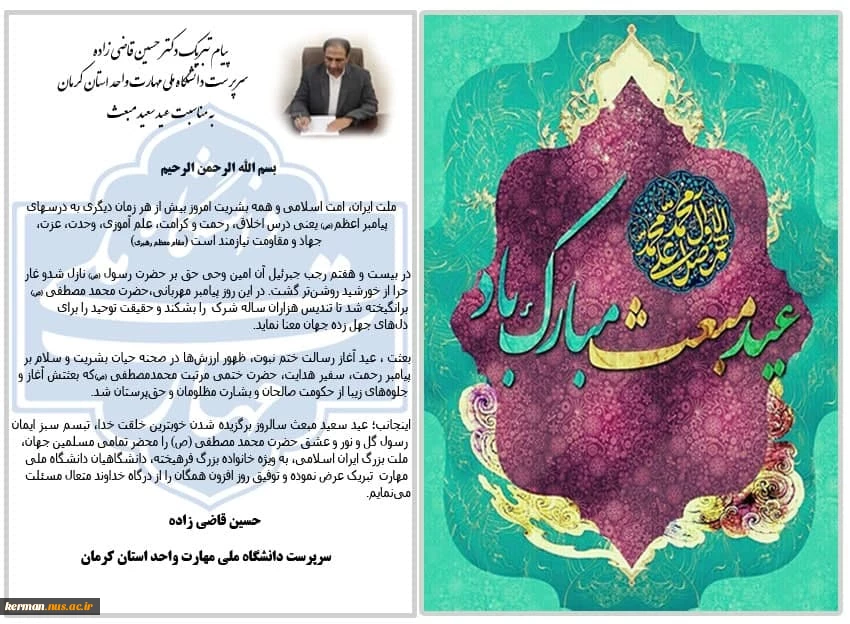 پیام تبریک دکتر حسین قاضی زاده
سرپرست دانشگاه ملی مهارت واحد استان کرمان
به مناسبت عید سعید مبعث
بسم الله الرحمن الرحیم
ملت ایران، امت اسلامی و همه بشریت امروز بیش از هر زمان دیگری به درسهای
پیامبر اعظم(ص) یعنی درس اخلاق، رحمت و کرامت، علم آموزی، وحدت، عزت،
جهاد و مقاومت نیازمند است (مقام معظم رهبری)
در بیست و هفتم رجب جبرئیل آن امین وحی حق بر حضرت رسول (ص) نازل شدو غار
حرا از خورشید روشن‌تر گشت. در این روز پیامبر مهربانی،حضرت محمد مصطفی (ص)
برانگیخته شد تا تندیس هزاران ساله شرک را بشکند و حقیقت توحید را برای
دل‌های جهل زده جهان معنا نماید.
بعثت ، عید آغاز رسالت ختم نبوت، ظهور ارزش‌ها در صحنه حیات بشریت و سلام بر
پیامبر رحمت، سفیر هدایت، حضرت ختمی مرتبت محمدمصطفی (ص)که بعثتش آغاز و
جلوه‌های زیبا از حکومت صالحان و بشارت مظلومان و حق‌پرستان شد.
اینجانب؛ عید سعید مبعث سالروز برگزیده شدن خوبترین خلقت خدا، تبسم سبز ایمان
رسول گل و نور و عشق حضرت محمد مصطفی (ص) را محضر تمامی مسلمین جهان،
ملت بزرگ ایران اسلامی، به ویژه خانواده بزرگ فرهیخته، دانشگاهیان دانشگاه ملی
مهارت تبریک عرض نموده و توفیق روز افزون همگان را از درگاه خداوند متعال مسئلت
می‌نمایم.
حسین قاضی زاده
سرپرست دانشگاه ملی مهارت واحد استان کرمان
عید مبعث مبارک باد
kerman.nus.ac.ir